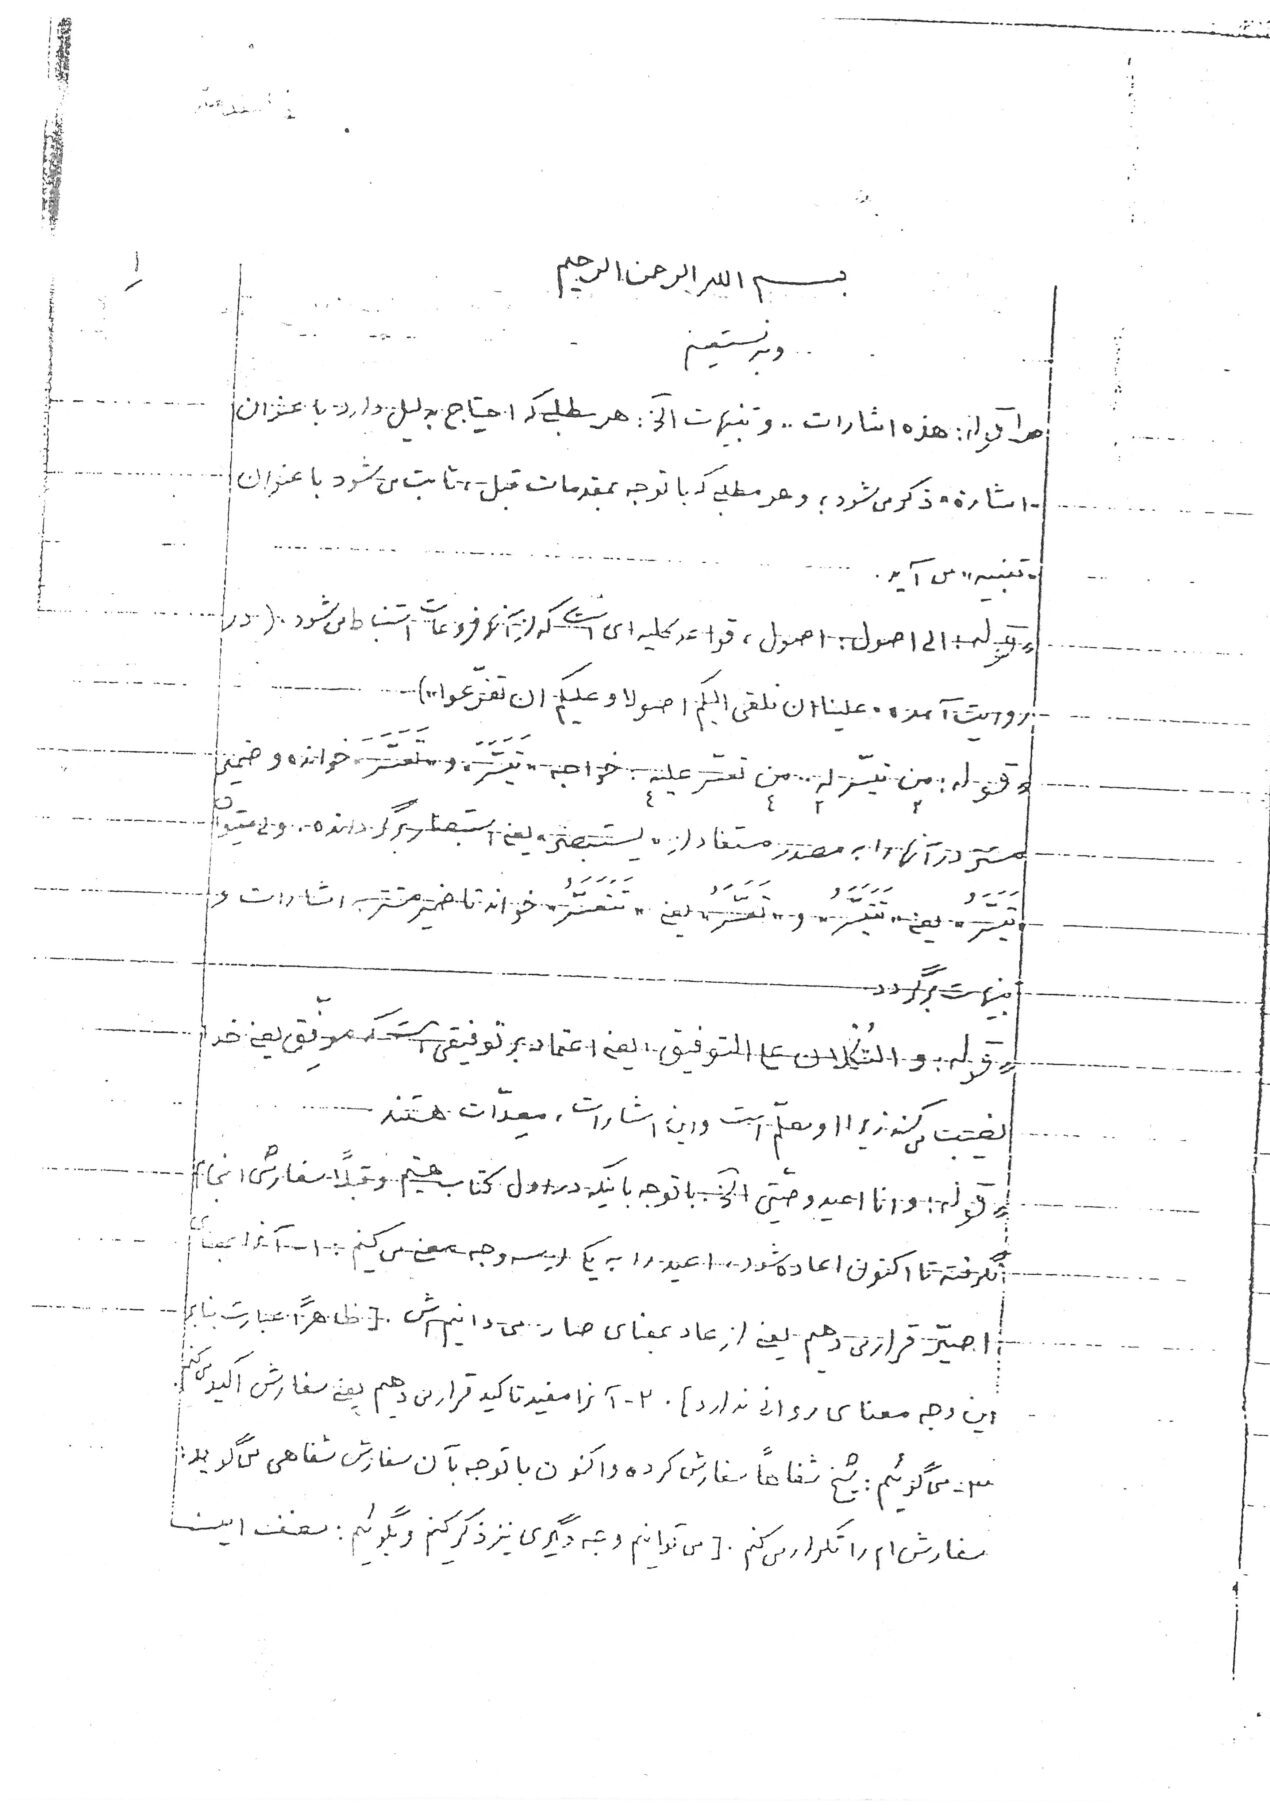 ۱
بسم الله الرحمن الرحیم
وبه نستعین
قوله: هذه اشارات .. و تنبیهات الخ: هر مطلبی که احتیاج به دلیل دارد با عنوان
«اشارة» ذکر می شود؛ و هر مطلبی که با توجه بمقدمات قبل، ثابت می شود با عنوان
«تنبیه» می آید.
قوله: الی اصول: اصول، قواعد کلیه ای است که از آنها فروعات استنباط می شود. (در
روایت آمده «علینا ان نلقی الیکم اصولا و علیکم ان تفرّعوا»)
قوله: من تیسّر له .. من تعسّر علیه: خواجه «تَیَسَّرَ» و «تَعَسَّرَ» خوانده و ضمیر
مستتر در آنها را به مصدر مستفاد از «یستبصر» یعنی استبصار برگردانده. ولی میتوان
«تَیَسَّرُ» یعنی «تَتَیَسَّرُ» و «تَعَسَّرُ» یعنی «تَتَعَسَّرُ» خواند تا ضمیر مستتر به اشارات و
تنبیهات برگردد
قوله: و التُکلان علی التوفیق: یعنی اعتماد بر توفیقی است که موفِّق یعنی خدا
نصیب می کند زیرا او معلّم است و این اشارات، معدّات هستند
قوله: و انا اعید وصیّتی الخ: با توجه باینکه در اول کتاب هستیم و قبلاً سفارشی انجام
نگرفته تا اکنون اعاده شود، اعید را به یکی از سه وجه معنی می کنیم: ۱- آنرا بمعنای
اصیّر قرار می دهیم یعنی از عاد بمعنای صار می دانیمش. [ظاهراً عبارت بنابر
این وجه معنای روانی ندارد]. ۲- آنرا مفید تاکید قرار می دهیم یعنی سفارش اکید می کنم.
۳- می گوئیم: شیخ شفاهاً سفارش کرده و اکنون با توجه بآن سفارش شفاهی می گوید:
سفارش ام را تکرار می کنم. [می توانیم وجه دیگری نیز ذکر کنیم و بگوئیم: مصنف این